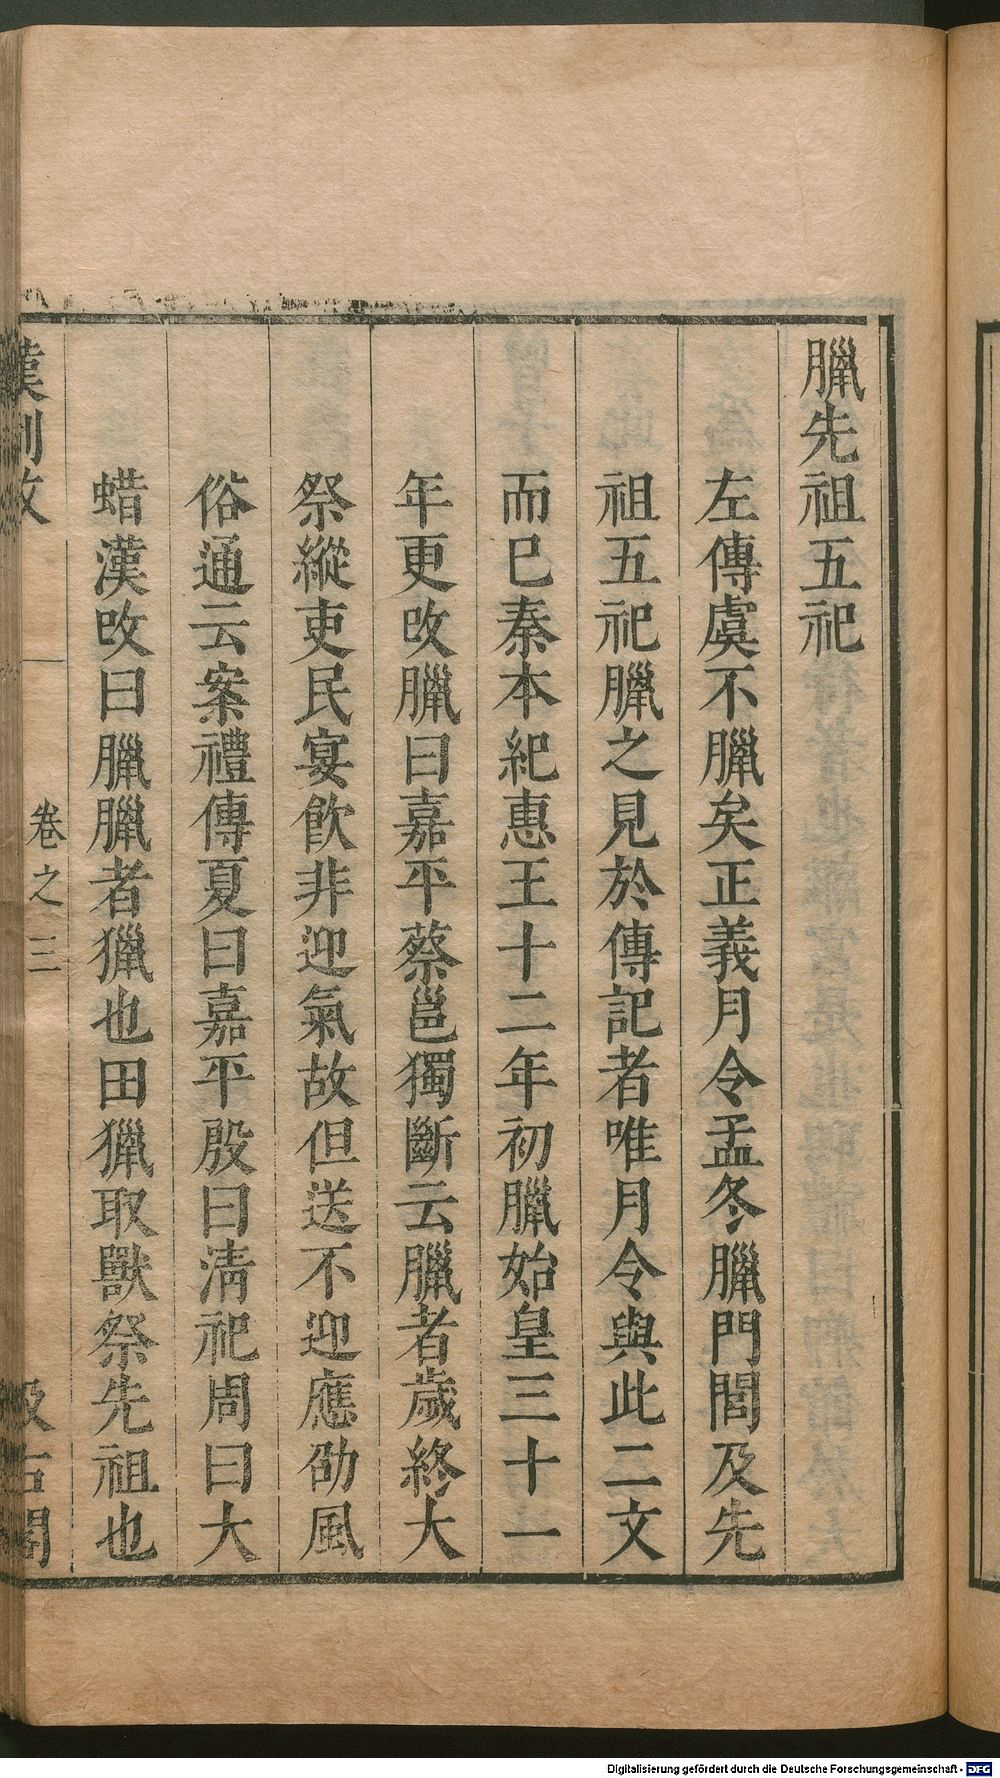 臘先祖五祀
左傳虞不臘矣正義月令孟冬臘門閭及先
祖五祀臘之見於傳記者唯月令與此二文
而已秦本紀惠王十二年初臘始皇三十一
年更改臘曰嘉平蔡邕獨斷云臘者歲終大
祭縱吏民宴飲非迎氣故但送不迎應劭風
俗通云案禮傳夏曰嘉平殷曰清祀周曰大
蜡漢改曰臘臘者獵也田獵取獸祭先祖也
漢制攷 卷之三 汲古閣
Digitalisierung gefördert durch die Deutsche Forschungsgemeinschaft - DFG